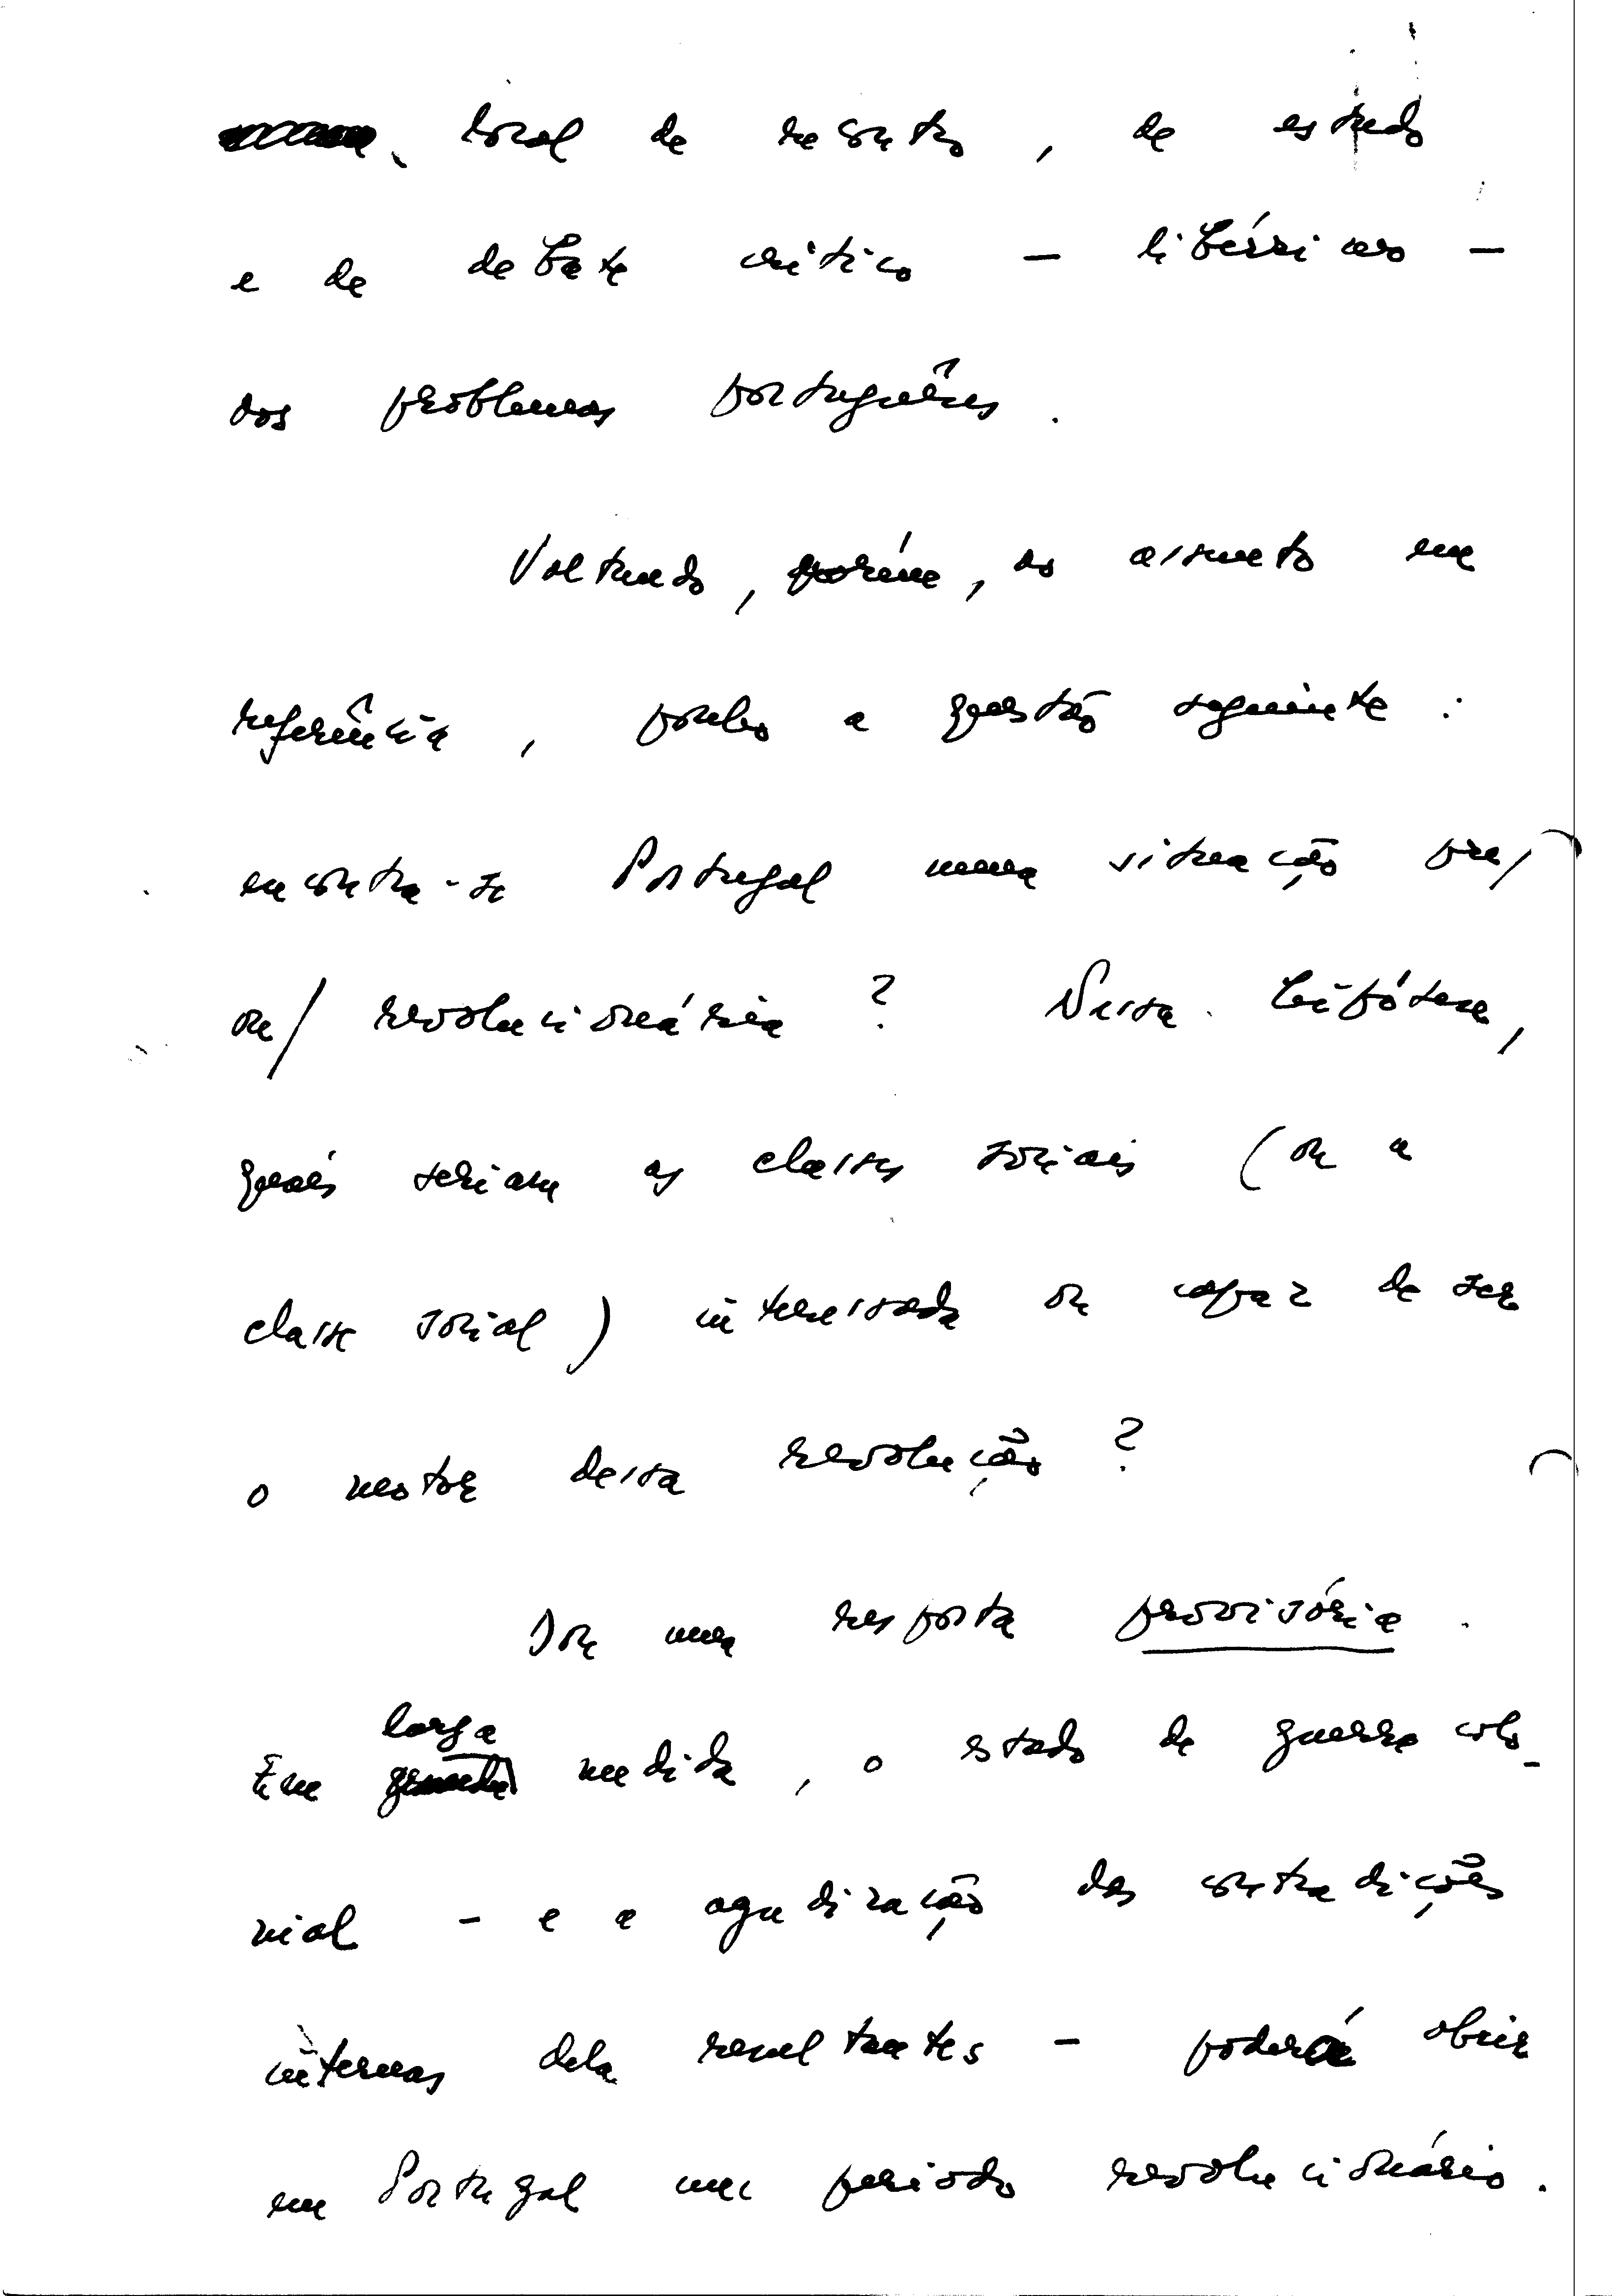 local de encontro, de estudo
e de debate crítico — libérrimo —
dos problemas portugueses.
Voltando, porém, ao assunto em
referência, ponho a questão seguinte:
encontra-se Portugal numa situação pre/
ou/ revolucionária? Nessa hipótese,
quais seriam as classes sociais (ou a
classe social) interessada ou capaz de ser
o motor dessa revolução?
Dou uma resposta provisória.
larga
Em medida, o estado de guerra colo-
nial - e a agudização das contradições
internas dela resultantes - poderá abrir
em Portugal um período revolucionário.